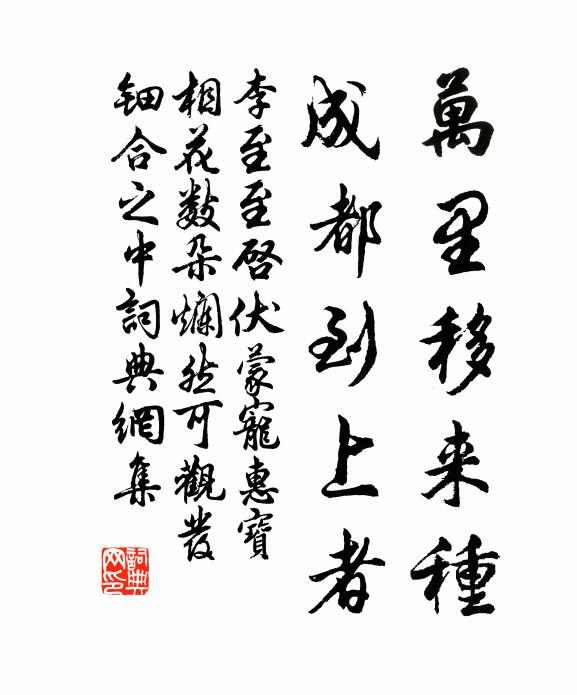 萬里移来種
成都到上者
李至至啓伏蒙寵惠寶
相花數朵爛然可觀發
鈿合之中詞典網集
詞典网印